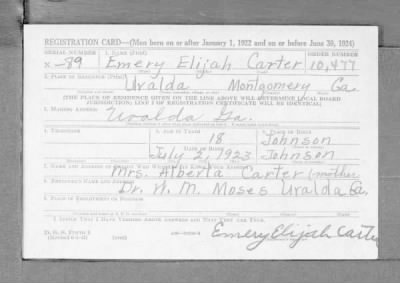 REGISTRATION CARD—(Men born on or after January 1, 1922 and on or before June 30, 1924)
SERIAL NUMBER 1. NAME (Print) ORDER NUMBER
X -89 Emery Elijah Carter 10,477
2. PLACE OF RESIDENCE (Print)
Uvalda Montgomery Ga
[THE PLACE OF RESIDENCE GIVEN ON THE LINE ABOVE WILL DETERMINE LOCAL BOARD
JURISDICTION; LINE 2 OF REGISTRATION CERTIFICATE WILL BE IDENTICAL]
3. MAILING ADDRESS
Uvalda Ga.
4. TELEPHONE 5. AGE IN YEARS 6. PLACE OF BIRTH
18 Johnson
DATE OF BIRTH
July 2, 1923 Johnson
7. NAME AND ADDRESS OF PERSON WHO WILL ALWAYS KNOW YOUR ADDRESS
Mrs. Alberta Carter (mother
8. EMPLOYER'S NAME AND ADDRESS
Dr. W. M. Moses Uvalda Ga,
9. PLACE OF EMPLOYMENT OR BUSINESS
I AFFIRM THAT I HAVE VERIFIED ABOVE ANSWERS AND THAT THEY ARE TRUE.
D. S. S. Form 1
Emery Elijah Carter